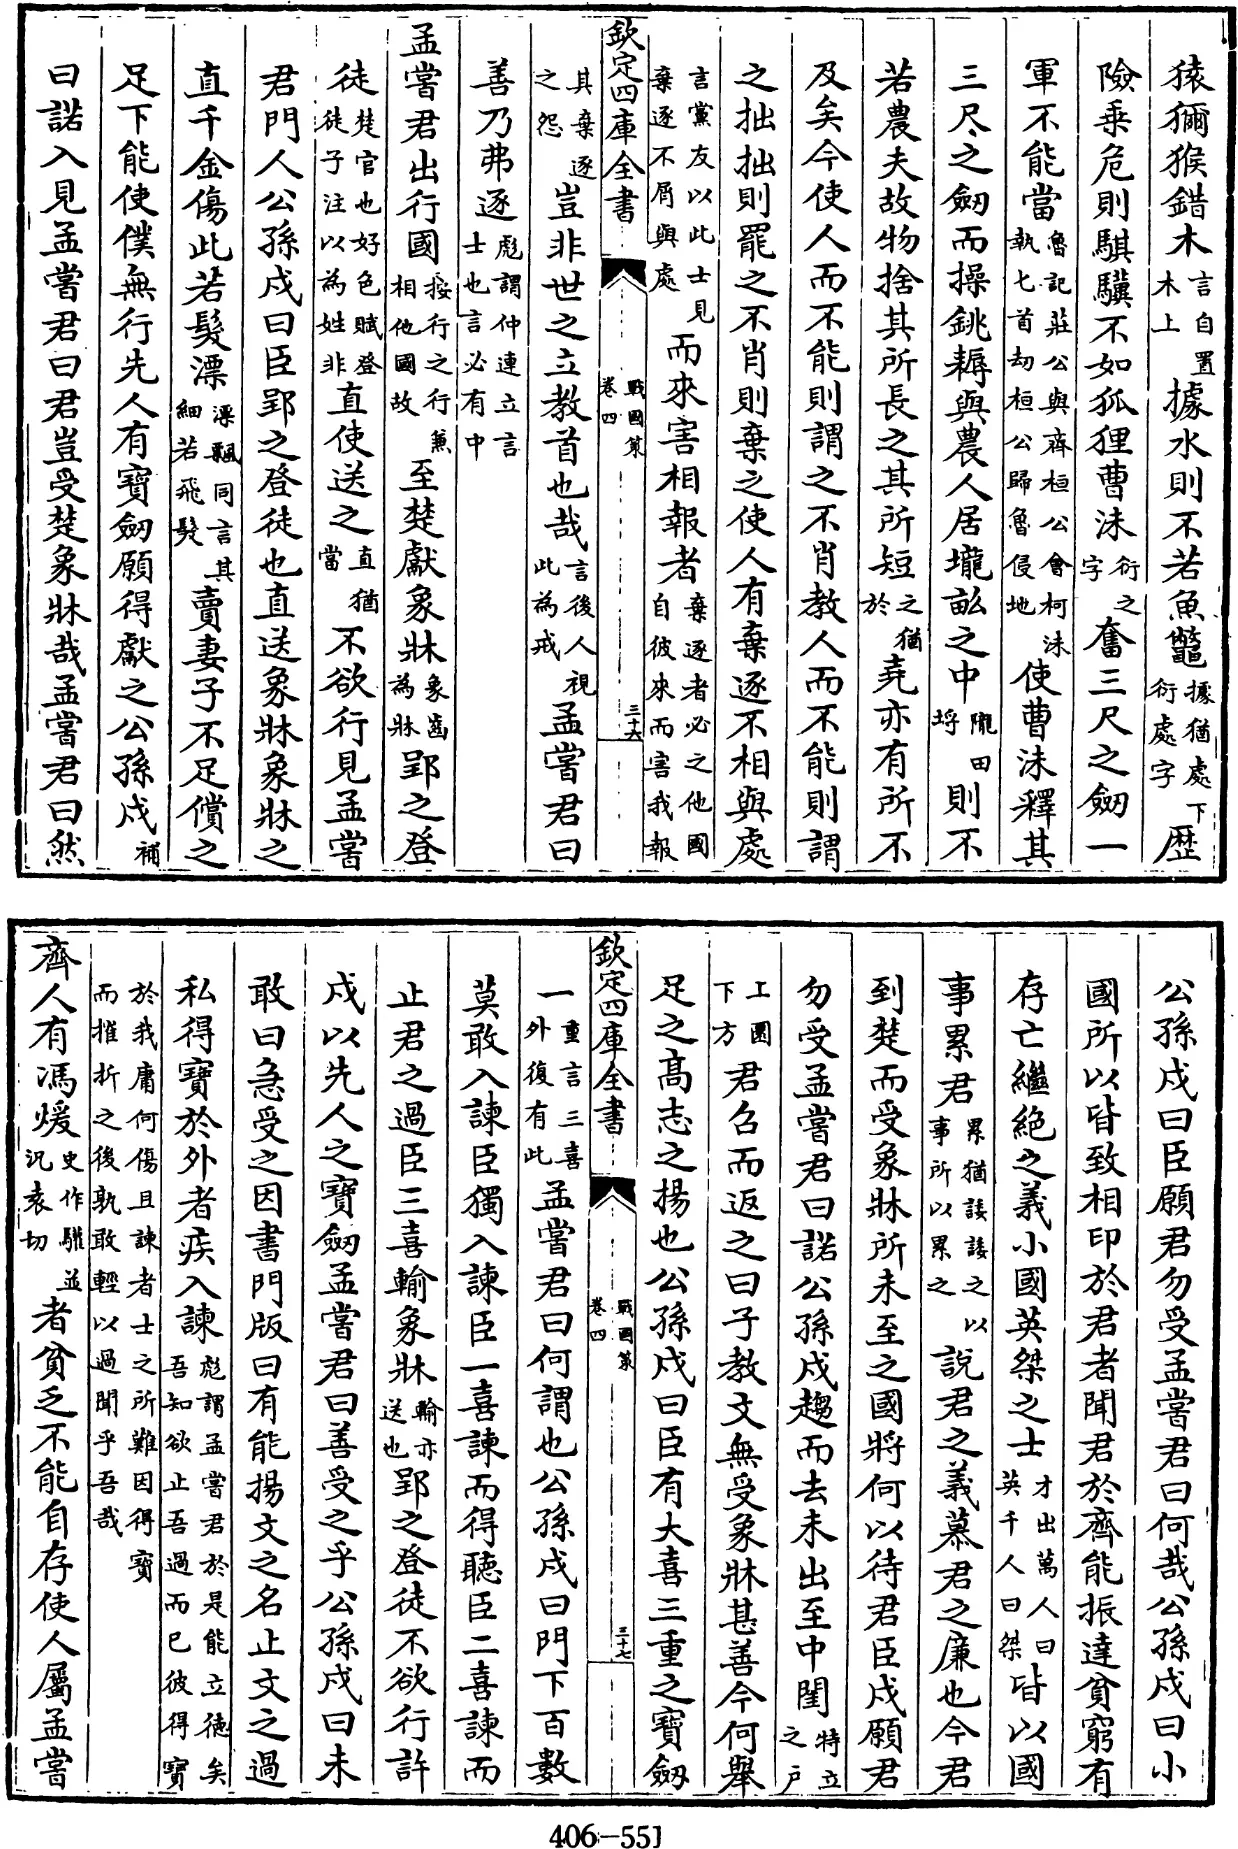 猿獼猴錯木言自置木上據水則不若魚鼈據猶處下衍處字歴
險乗危則騏驥不如狐狸曹沬衍之字奮三尺之劒一
軍不能當魯記莊公與齊桓公會柯沬執匕首劫桓公歸魯侵地使曹沬釋其
三尺之劒而操銚耨與農人居壠畝之中隴田埓則不
若農夫故物捨其所長之其所短之猶於堯亦有所不
及矣今使人而不能則謂之不肖教人而不能則謂
之拙拙則罷之不肖則棄之使人有棄逐不相與處
言黨友以此士見棄逐不屑與處而來害相報者棄逐者必之他國自彼來而害我報
欽定四庫全書 戰國策卷四 三十六
其棄逐之怨豈非世之立教首也哉言後人視此為戒孟嘗君曰
善乃弗逐彪謂仲連立言士也言必有中
孟嘗君出行國按行之行兼相他國故至楚獻象牀象齒為牀郢之登
徒楚官也好色賦登徒子注以為姓非直使送之直猶當不欲行見孟嘗
君門人公孫戍曰臣郢之登徒也直送象牀象牀之
直千金傷此若髮漂漂飄同言其細若飛髮賣妻子不足償之
足下能使僕無行先人有寶劒願得獻之公孫戍補
曰諾入見孟嘗君曰君豈受楚象牀哉孟嘗君曰然
公孫戍曰臣願君勿受孟嘗君曰何哉公孫戍曰小
國所以皆致相印於君者聞君於齊能振達貧窮有
存亡繼絶之義小國英桀之士才出萬人曰英千人曰桀皆以國
事累君累猶諉諉之以事所以累之說君之義慕君之廉也今君
到楚而受象牀所未至之國將何以待君臣戍願君
勿受孟嘗君曰諾公孫戍趨而去未出至中閨特立之戶
上圜下方君召而返之曰子教文無受象牀甚善今何舉
足之高志之揚也公孫戍曰臣有大喜三重之寶劒
欽定四庫全書 戰國策卷四 三十七
一重言三喜外復有此孟嘗君曰何謂也公孫戍曰門下百數
莫敢入諫臣獨入諫臣一喜諫而得聽臣二喜諫而
止君之過臣三喜輸象牀輸亦送也郢之登徒不欲行許
戍以先人之寶劒孟嘗君曰善受之乎公孫戍曰未
敢曰急受之因書門版曰有能揚文之名止文之過
私得寶於外者疾入諫彪謂孟嘗君於是能立德矣吾知欲止吾過而已彼得寶
於我庸何傷且諫者士之所難因得寶而摧折之後孰敢輕以過聞乎吾哉
齊人有馮煖史作驩並况袁切者貧乏不能自存使人屬孟嘗
406-551